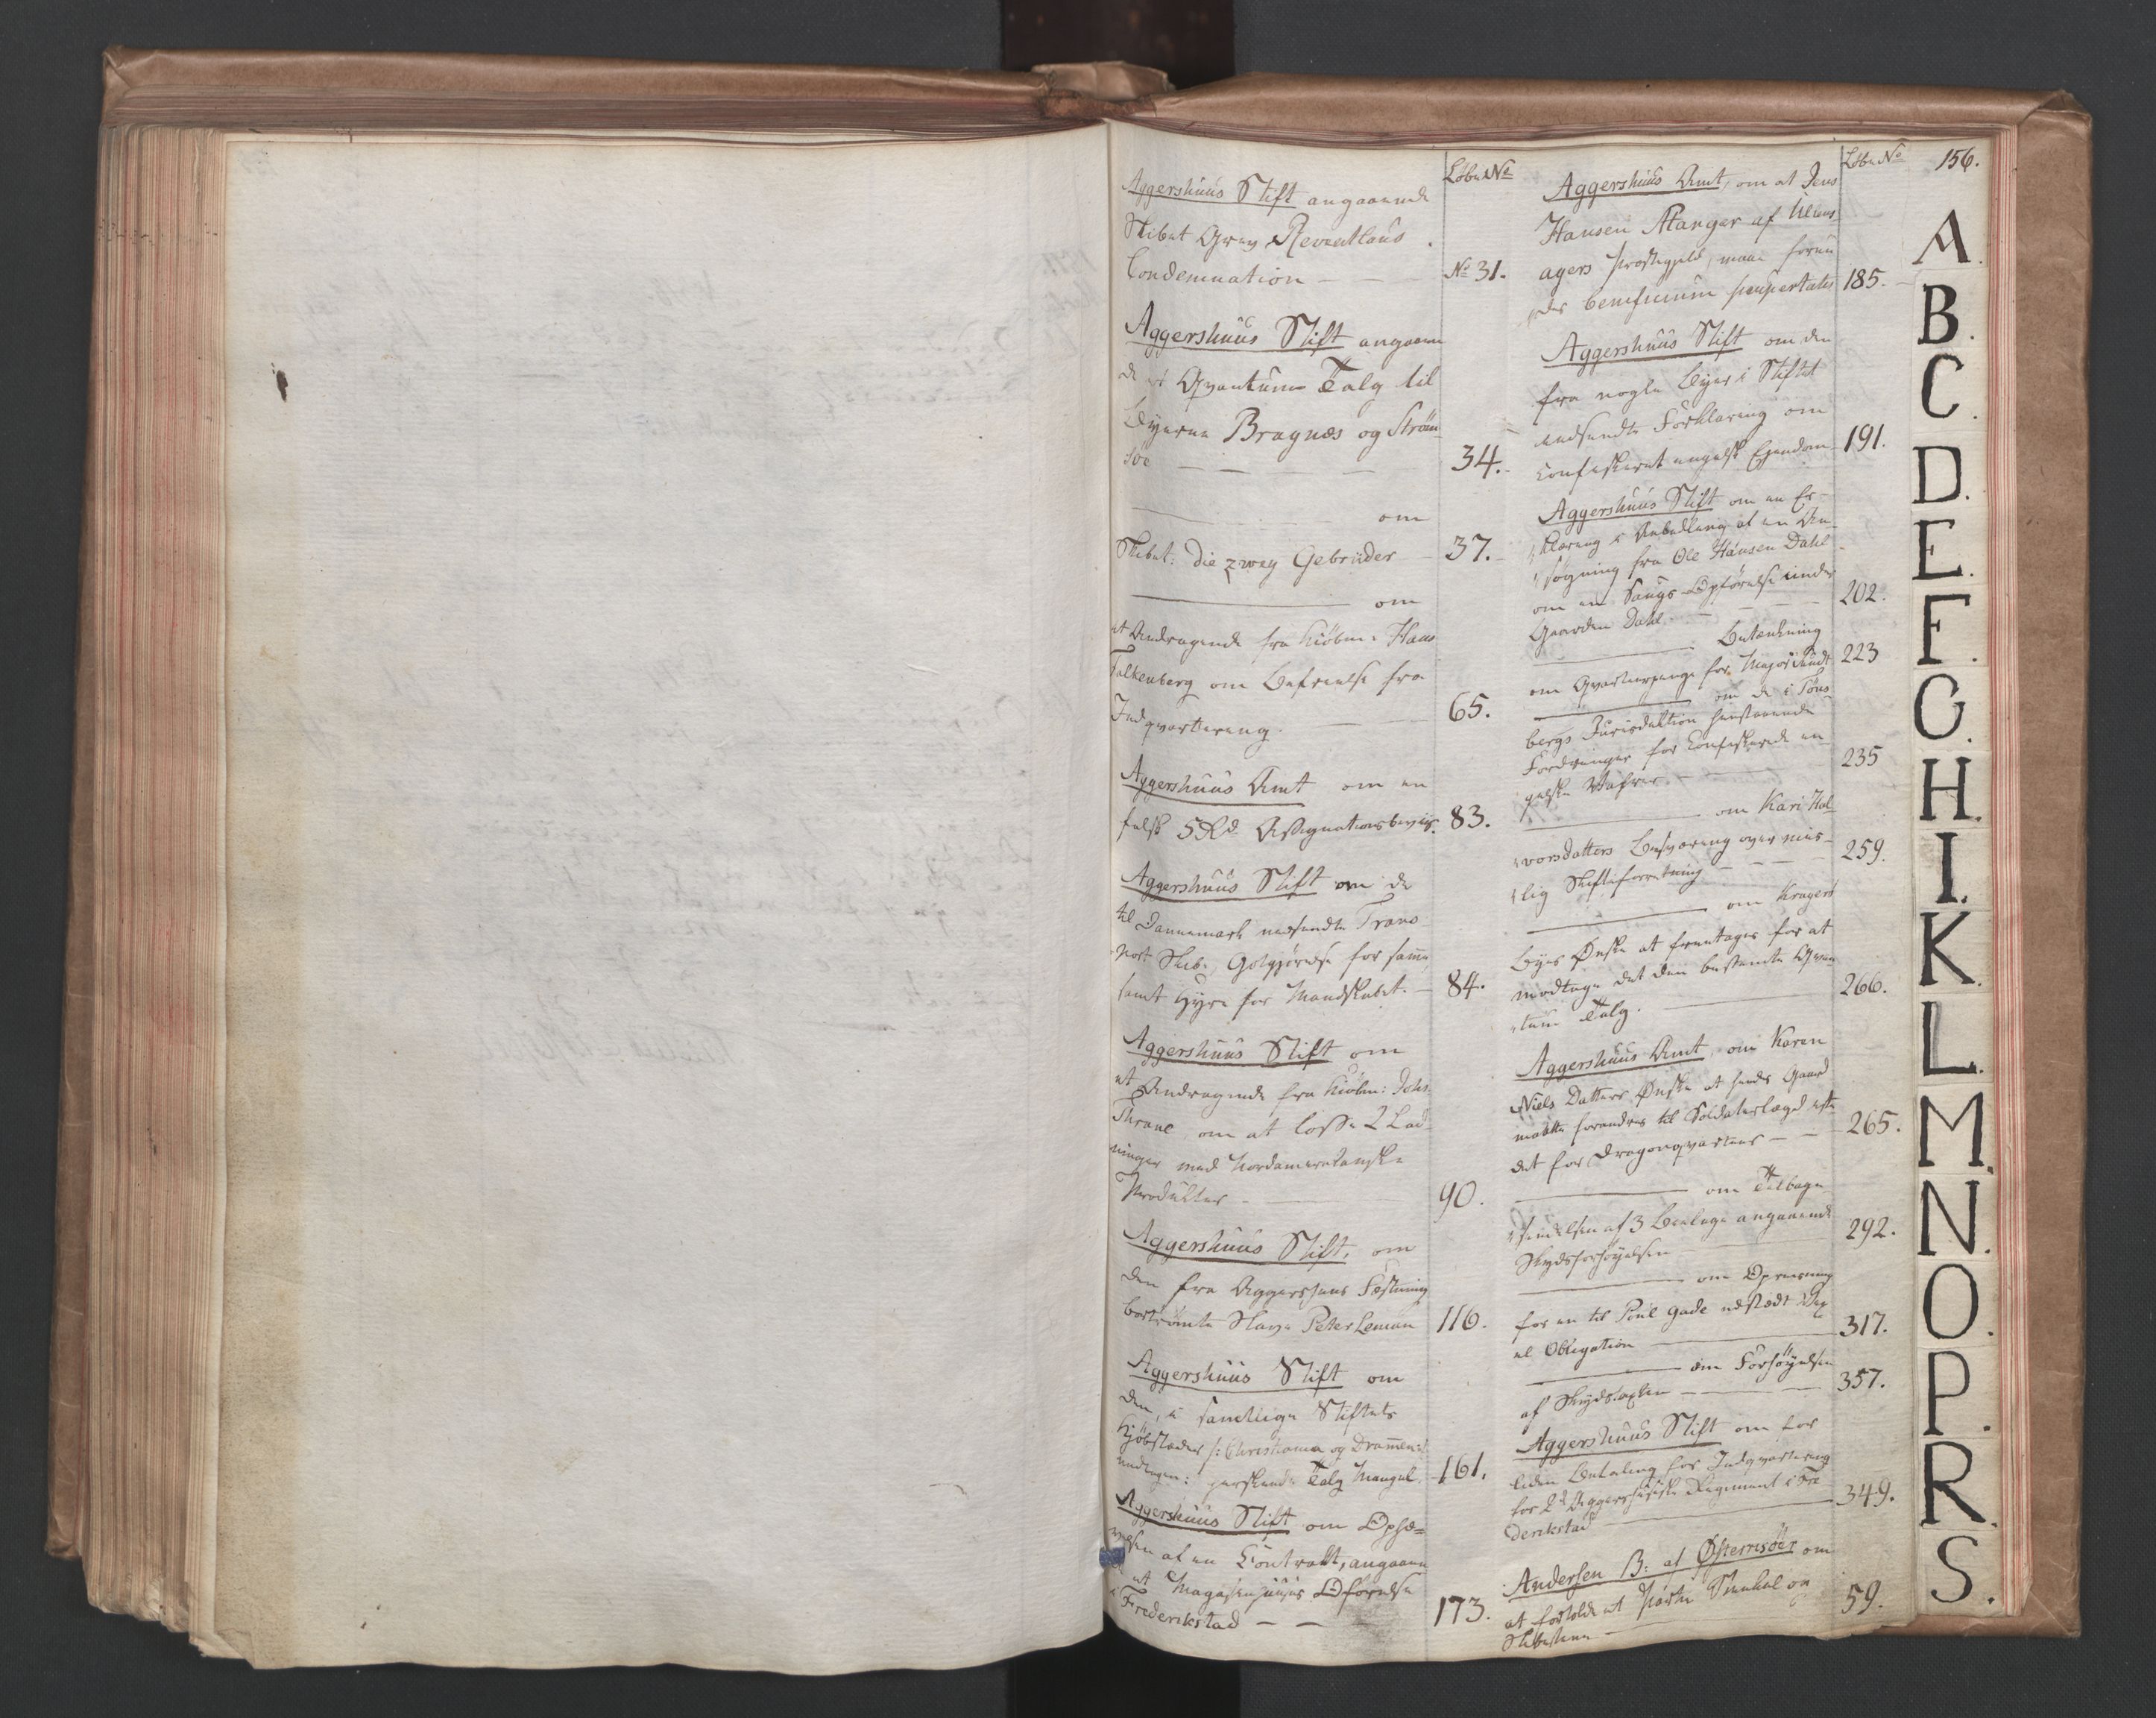 Løbe No
Aggershuus Stift angaaende
Skibet Grev Reventlaus
Condemnation — — No 31.
Aggershuus Stift angaaen
de et Qvantum Talg til
Byerne Bragnæs og Strøm
søe — — — 34.
— om
Skibet: Die zwey Gebrüder — 37.
— om
et Andragende fra Kiøbm: Hans
Falkenberg om Befrielse fra
Indqvartering. — — 65.
Aggershuus Amt om en
falsk 5 Rd Assignationsbeviis. 83.
Aggershuus Stift om de
til Dannemark nedsendte Trans
port Skibe, Godtgjørelse for samme
samt Hyre for Mandskabet. — 84.
Aggershuus Stift om
et Andragende fra Kiøbm: Johs
Thrane, om at losse 2 Lad
ninger med Nordamerikanske
Produkter — 90.
Aggershuus Stift, om
den fra Aggershuus Fæstning
bortrømte Slave Peter Leman 116.
Aggershuus Stift om
den, i samtlige Stiftets
Kjøbstæder /: Christiania og Drammen
undtagen: herskende Talg Mangel. 161.
Aggershuus Stift om Ophæ=
velsen af en Contrakt, angaaen
de et Magasinhuuses Opførelse
i Frederikstad — — 173.
Løbe No
156.
Aggershuus Amt, om at Jens
Hansen Stanger af Ullens
agers Præstegield, maae forun
des beneficium paupertatis 185.
Aggershuus Stift om den
fra nogle Byer i Stiftet
indsendte Forklaring om
confiskeret engelsk Ejendom 191.
Aggershuus Stift om en Er-
klæring i Anledning af en An
søgning fra Ole Hansen Dahl
om en Saugs Opførelse under
Gaarden Dahl. — — 202.
— Betænkning
om Qvarteerpenge for Major 223
— om de i Tøns
bergs Jurisdiktion henstaaende
Fordringer for Confiskerede en
gelske Wahrer. — 235
— om Kari Hal
vorsdatters Besværing over mis-
lig Skifteforretning — 259.
— om Kragerø
Byes Ønske at fremtages for at
modtage det den bestemte Qvan
tum Talg. — 266.
Aggershuus Amt, om Karen
Niels Datters Ønske at hendes Gaard
maatte forandres til Soldaterlægd iste
det for Dragonqvarteer — — 265.
— om Tilbage
sendelsen af 3 Beilage angaaende
Skydsforhøyelsen — 292.
— om Opreisning
for en til Poul Gade udstædt
el Obligation — 317.
— om Forhøyelsen
af Skydstaxten — 357.
Aggershuus Stift om for
liden Betaling for Indqvartering
for 2d Aggershusiske Regiment i Fre
derikstad — 349.
Andersen B: af Østerrisøer om
at forholde et Parti Steenkul og
Skibet — 59.
A.
B.
C.
D.
E.
F.
G.
H.
I.
K.
L.
M.
N.
O.
P.
R.
S.